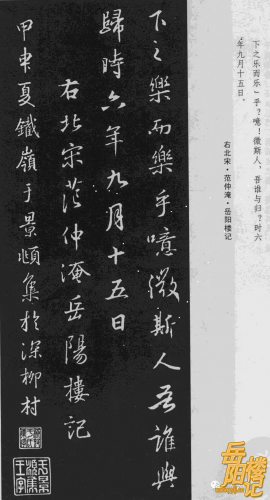 下之樂而樂乎噫微斯人吾誰與
歸時六年九月十五日
右北宋范仲淹岳陽樓記
甲申夏鐵嶺于景頫集於深柳村
下之乐而乐」乎？噫！微斯人，吾谁与归？时六
年九月十五日。
右北宋·范仲淹·岳阳楼记
岳阳楼记